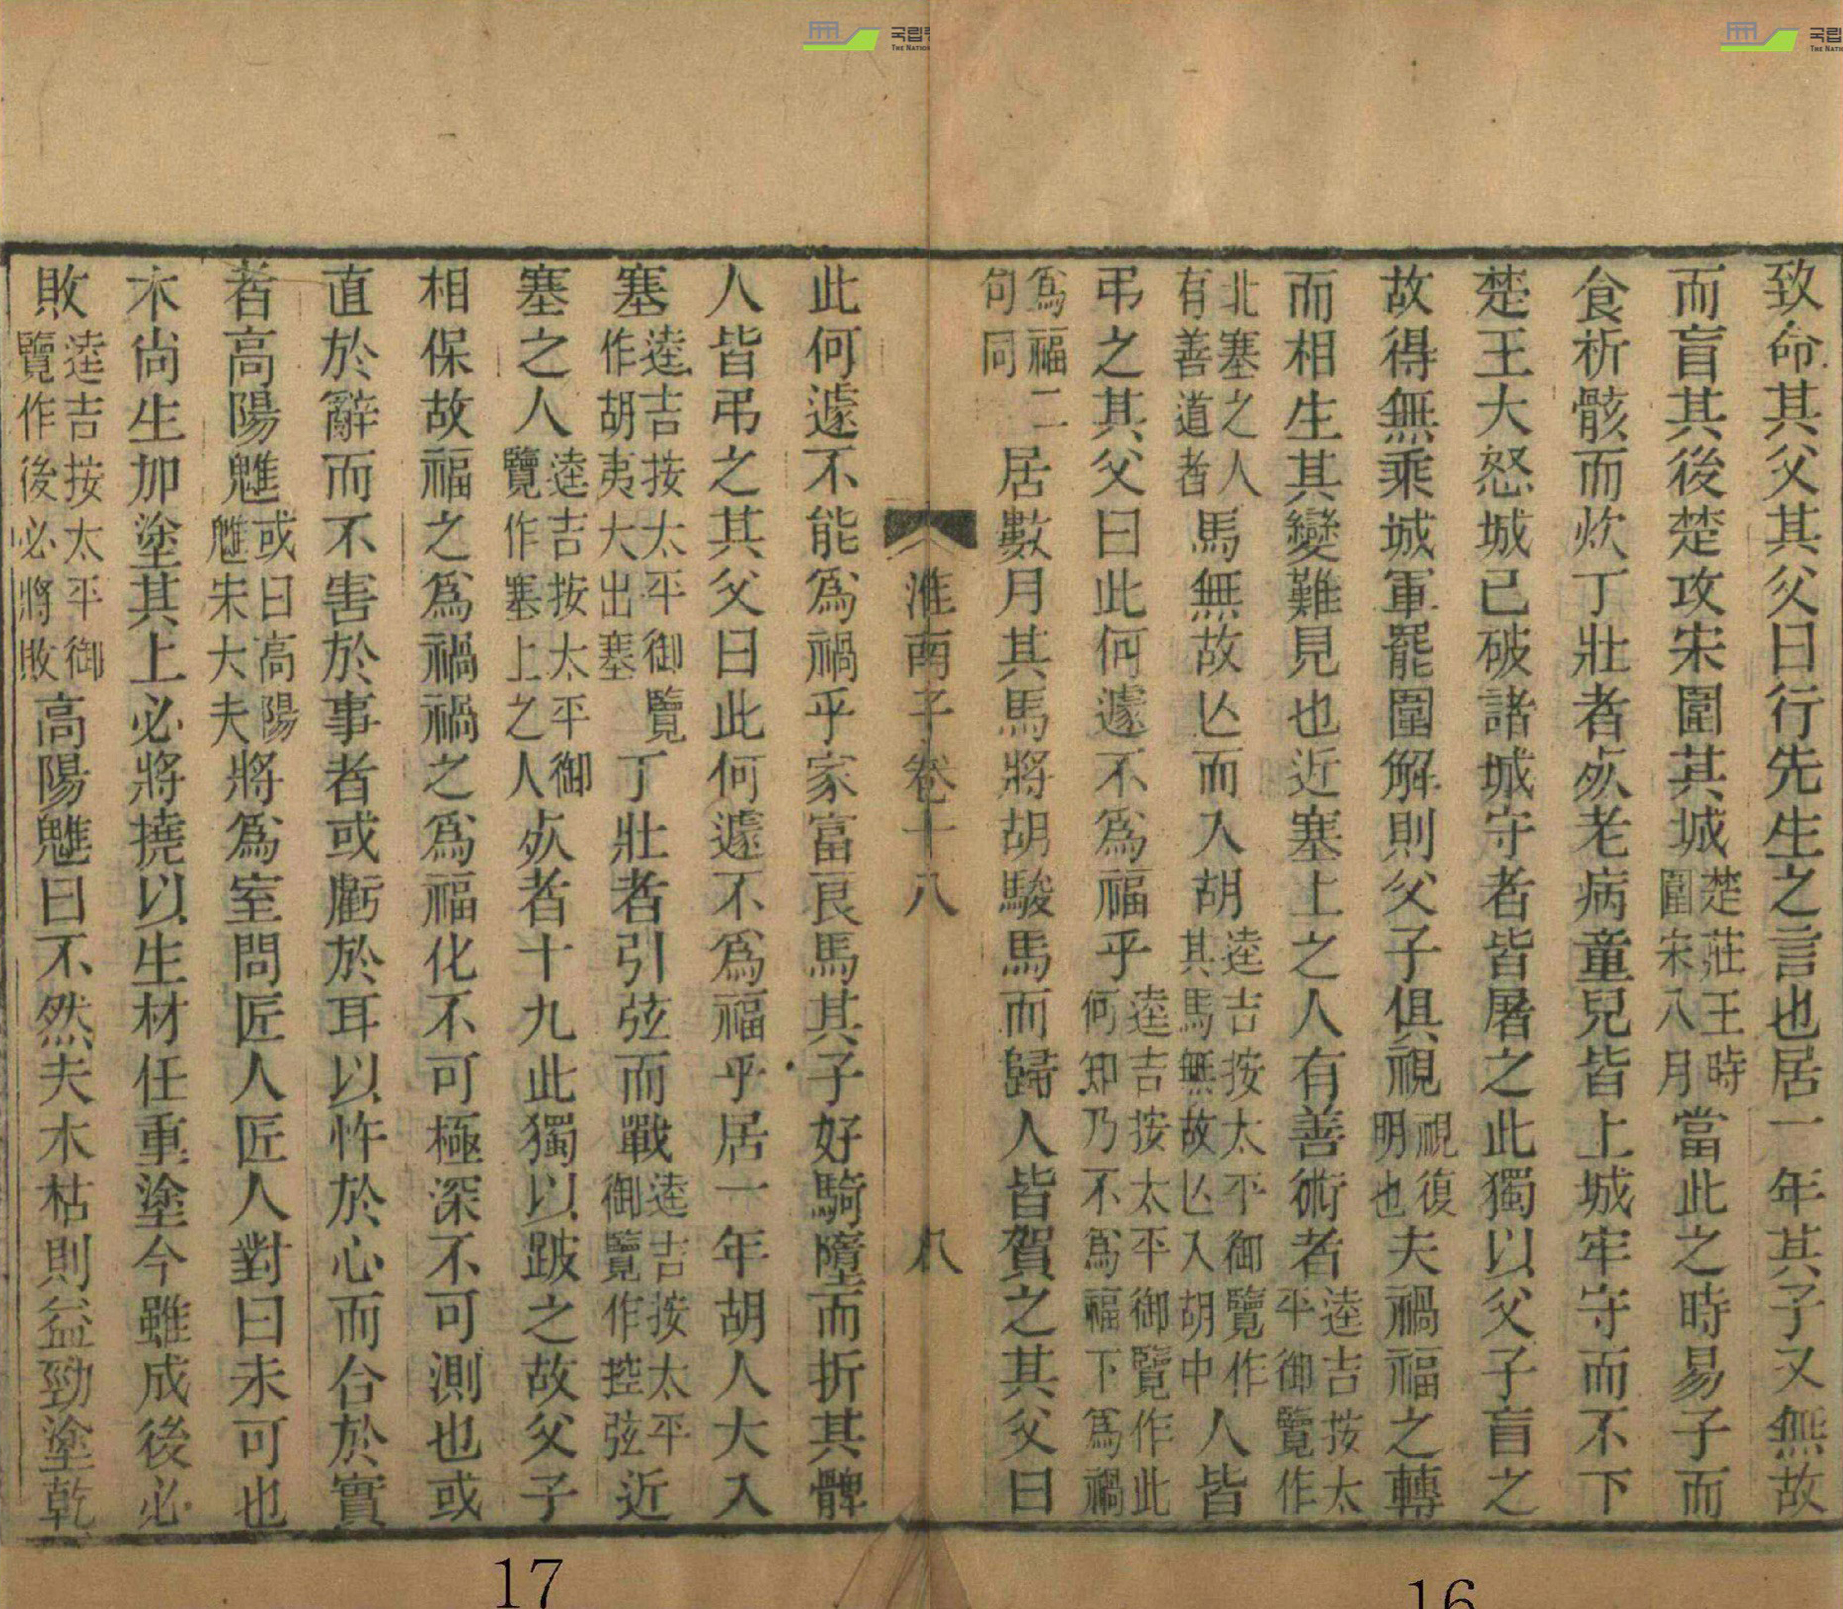 致命其父其父曰行先生之言也居一年其子又無故
而盲其後楚攻宋圍其城楚莊王時圍宋八月當此之時易子而
食析骸而炊丁壯者死老病童兒皆上城牢守而不下
楚王大怒城已破諸城守者皆屠之此獨以父子盲之
故得無乘城軍罷圍解則父子俱視視復明也夫禍福之轉
而相生其變難見也近塞上之人有善術者逵吉按太平御覽作
北塞之人有善道者馬無故亾而入胡逵吉按太平御覽作其馬無故亾入胡中人皆
弔之其父曰此何遽不爲福乎逵吉按太平御覽作此何知乃不爲福下爲禍
爲福二句同居數月其馬將胡駿馬而歸人皆賀之其父曰
淮南子卷十八 八
此何遽不能爲禍乎家富良馬其子好騎墮而折其髀
人皆弔之其父曰此何遽不爲福乎居一年胡人大入
塞逵吉按太平御覽作胡夷大出塞丁壯者引弦而戰逵吉按太平御覽作控弦近
塞之人逵吉按太平御覽作塞上之人死者十九此獨以跛之故父子
相保故福之爲禍禍之爲福化不可極深不可測也或
直於辭而不害於事者或虧於耳以忤於心而合於實
者高陽魋或曰高陽魋宋大夫將爲室問匠人匠人對曰未可也
木尚生加塗其上必將撓以生材任重塗今雖成後必
敗逵吉按太平御覽作後必將敗高陽魋曰不然夫木枯則益勁塗乾
국립
THE NATION
국립
THE NATI
17
16